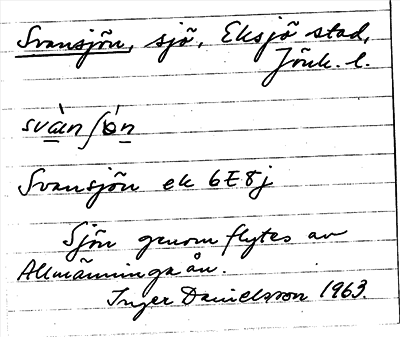 Svansjön, sjö, Eksjö stad,
Jönk. l.
svànʃón
Svansjön ek 6E8j
Sjön genomflytes av
Allmänningaån.
Inger Danielsson 1963.